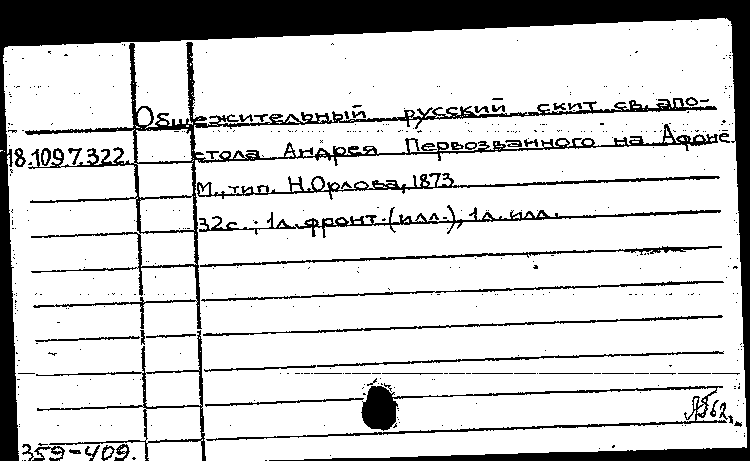 Общежительный русский скит св. апо-
18.109 7.322. стола Андрея Первозванного на Афоне
М., тип. Н.Орлова, 1873
32с.; 1л. фронт.(илл.), 1л. илл.
62.
359-409.